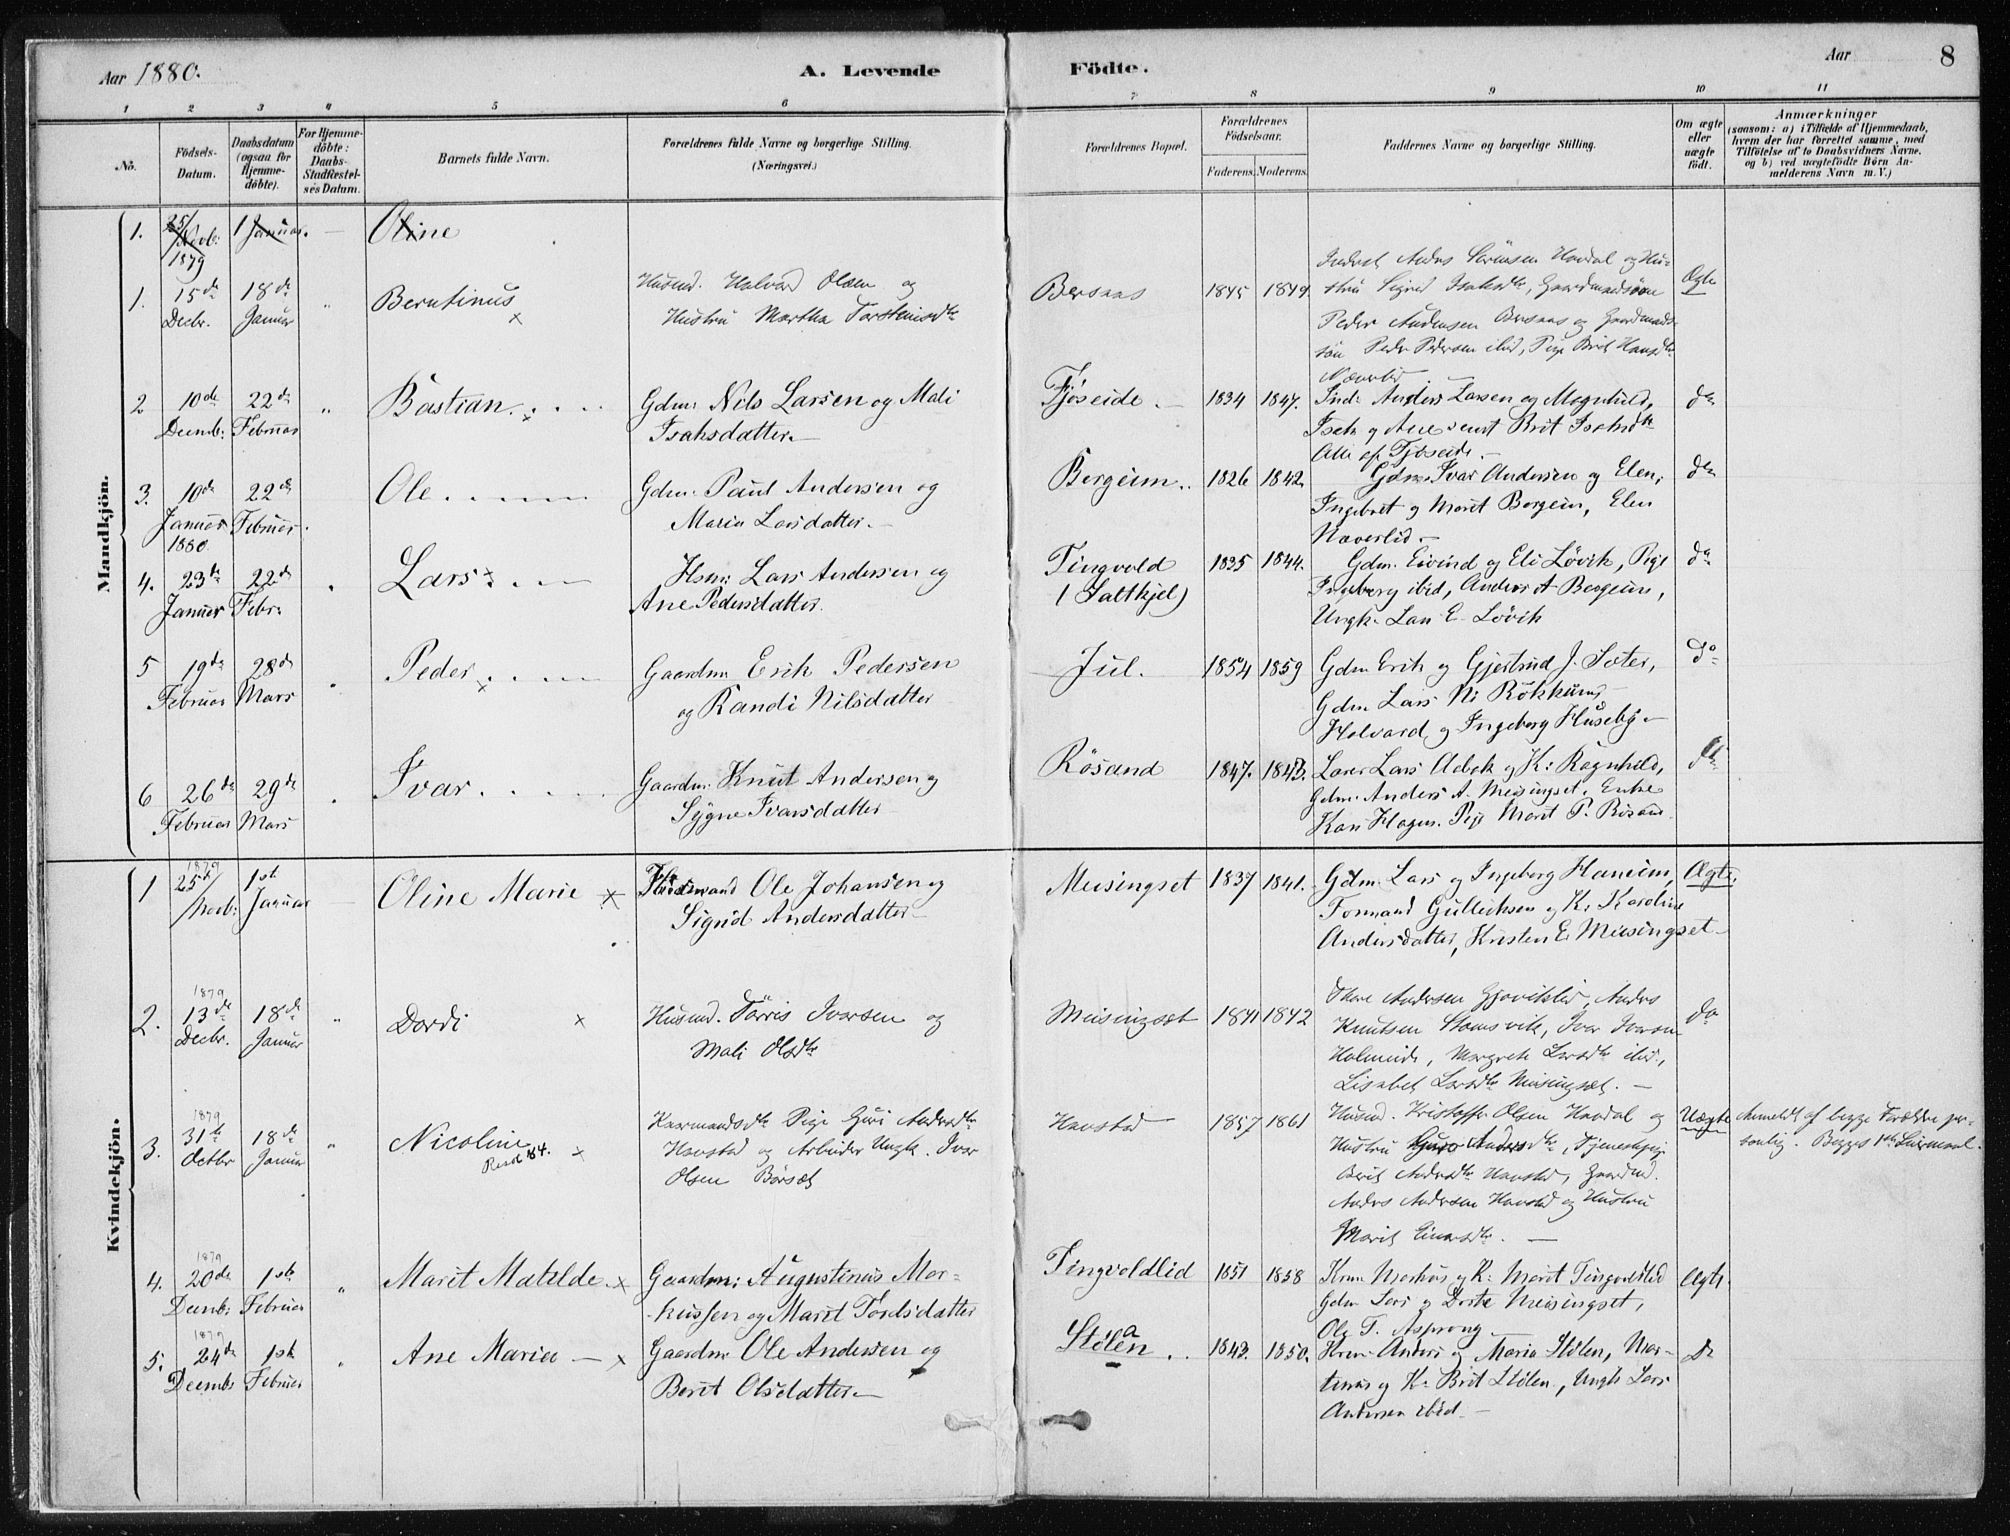 Aar 1880.
A. Levende
Födte.
Aar
8
1
2
3
4
5
6
7
8
9
10
11
No.
Födsels-
Datum.
Daabsdatum
(ogsaa for
Hjemme-
döbte).
For Hjemme-
döbte:
Daabs-
Stadfæstel-
ses Datum.
Barnets fulde Navn.
Forældrenes fulde Navne og borgerlige Stilling.
(Næringsvei.)
Forældrenes Bopæl.
Forældrenes
Födselsaar.
Faderens.
Moderens.
Faddernes Navne og borgerlige Stilling.
Om ægte
eller
uægte
födt.
Anmærkninger
(saasom: a) i Tilfælde af Hjemmedaab,
hvem der har forrettet samme, med
Tilföielse af to Daabsvidners Navne.
og b) ved uægtefödte Börn An-
melderens Navn m. V.)
Mandkjön.
1. 25/Novb: 1879 1 Januar. — Oline
1. 15de Decbr. 18de Januar " Berntinus
Husmd. Halvard Olsen og
Hustru Martha Torstensdtr
Bersaas 1845 1849.
Inderst Anders Sörensen Havdal og Hu-
stru Sigrid Isaksdtr, Gaardmandssön
Peder Andersen Bersaas og Gaardmands-
sön Peder Pedersen ibid, Pige Brit Hansdtr
Naverlid. —
Ægte
2 10de Decemb: 22de Februar " Bastian
Gdm: Nils Larsen og Mali
Isaksdatter. —
Fjöseide. — 1834 1847.
Ind: Anders Larsen og Magnhild,
Isak og Ane samt Brit Isaksdtr
Alle af Fjöseide. —
do
3. 10de Januar 1880. 22de Februar Ole
Gdm: Paul Andersen og
Maria Larsdatter. —
Bergeim.. 1826 1842.
Gdm. Ivar Andersen og Elen,
Ingebret og Marit Bergeim, Elen
Naverlid —
do
4. 23de Januar 22de Febr. Lars
Hsm: Lars Andersen og
Ane Pedersdatter.
Tingvold
(Saltkjel)
1835 1844.
Gdm. Eivind og Eli Lövik, Pige
Ingeborg ibid, Anders A Bergeim,
Ungk. Lars E. Lövik
do
5 19de Februar 28de Mars Peder
Gaardm. Erik Pedersen
og Randi Nilsdatter
Jul. 1854 1859
Gdm Erik og Gjertrud J. Sæter,
Gdm Lars N: Rökkum,
Halvard og Ingeborg Huseby —
do
6 26de Februar 29de Mars Ivar
Gaardm: Knut Andersen og
Sygne Ivarsdatter
Rösand 1847. 1843.
Lærer Lars Aabak og K: Ragnhild,
Gdm. Anders A. Meisingset. Enke
Kari Hagen. Pige Marit P. Rösand.
do
Kvindekjön.
1 1879 25de Novb: 1ste Januar — Oline Marie
Husmand Ole Johansen og
Sigrid Andersdatter —
Meisingset 1837 1841.
Gdm. Lars og Ingeborg Haneim,
Formand Gulliksen og K: Karoline
Andersdatter, Kristen E Meisingset —
Ægte.
2. 1879 13de Decbr. 18de Januar " Dordi
Husmd. Törris Ivarsen og
Mali Olsdtr
Meisingset 1841 1842
Thore Andersen Gjöviksli, Anders
Knutsen Stamsvik, Ivar Ivarsen
Holmeide, Margrete Larsdtr ibid.,
Lisabet Larsdtr Meisingset. —
do
3. 1879 31te Octbr 18de Januar " Nicoline
Resol 84.
Kaarmandsdtr Pige Guri Andersdtr
Havstad og Arbeider Ungk. Ivar
Olsen Börset
Havstad 1857 1861
Husmd. Kristoffer Olsen Havdal og
Hustru Andersdtr, Tjenestepige
Berit Andersdtr Havstad, Gaardmd.
Anders Andersen Havstad og Hustru
Marit Einarsdtr. —
Uægte
Anmeldt af begge Forældre per-
sonlig. Begges 1ste Leiermaal.
4. 1879 20de Decmb: 1ste Februar " Marit Matilde
Gaardm: Augustinus Mar-
kussen og Marit Tordsdatter
Tingvoldlid 1851 1858
Krm Markus og K: Marit Tingvoldlid
Gdm Lars og Dorte Meisingset,
Ole T. Asprong
Ægte.
5. 1879 24de Decmb: 1ste Februar Ane Maria —
Gaardm Ole Andersen og
Berit Olsdatter. —
Stölen. . 1843. 1850.
Krm Anders og Maria Stölen, Mar-
tinus og K: Brit Stölen, Ungk Lars
Andersen ibid. —
Do